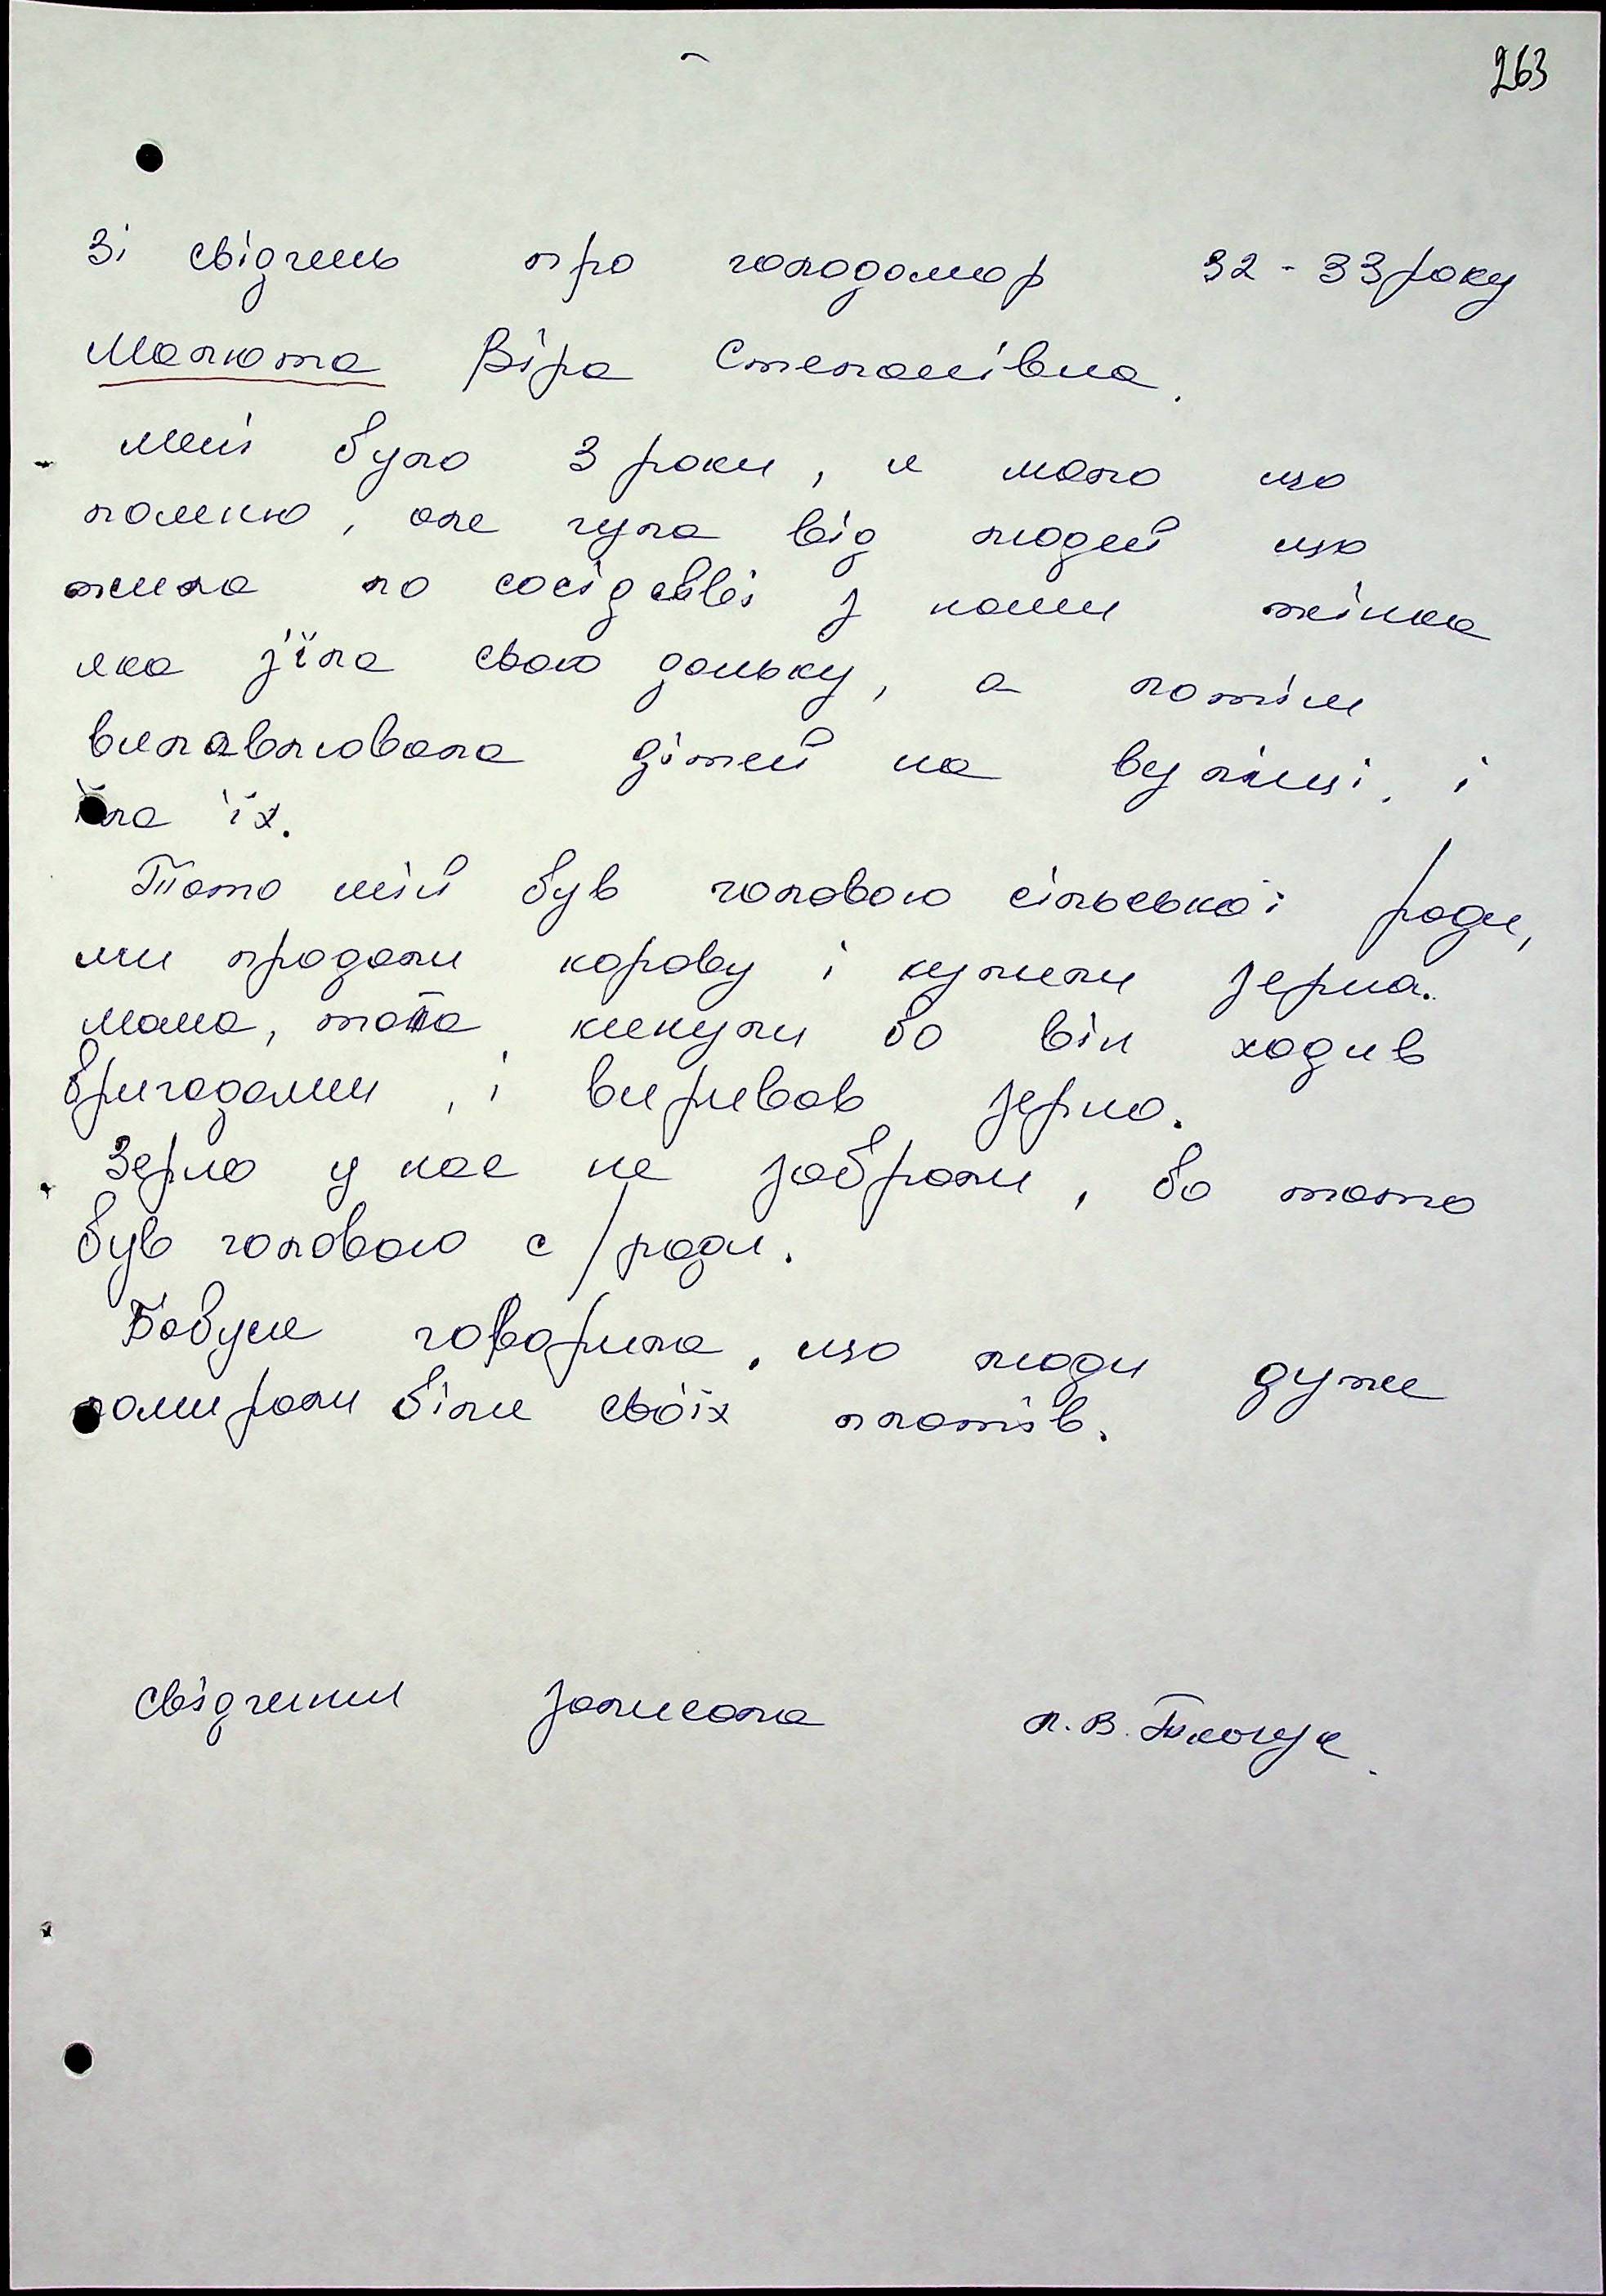 263
Зі свідчень про голодомор 32-33 року
Малюта Віра Степанівна.
Мені було 3 роки, я мало що
помню, але чула від людей що
жила по сосідсвві з нами жінка
яка з'їла свою доньку, а потім
виловлювала дітей на вулиці, і
їла їх.
Тато мій був головою сільської ради,
ми продали корову і купили зерна.
Мама, тата кинули бо він ходив
бригадами, і виривав зерно.
Зерно у нас не забрали, бо тато
був головою с/ради.
Бабуся говорила, що люди дуже
помирали біля своїх плотів.
Свідчення записала Л.В.